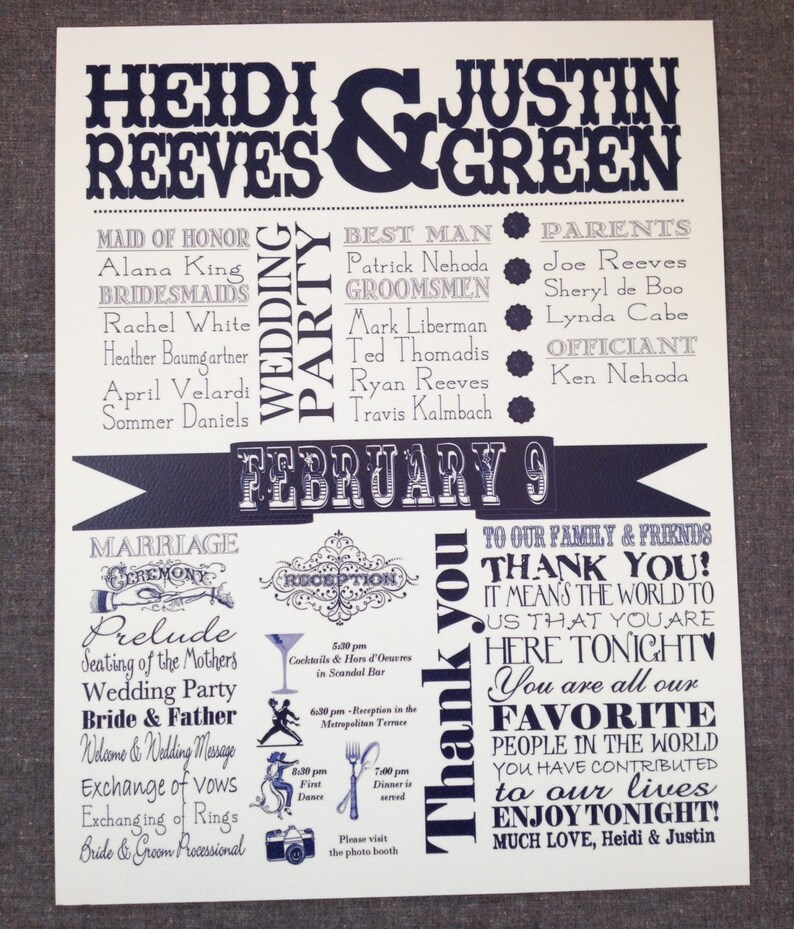 HEIDI
REEVES
&
JUSTIN
GREEN
MAID OF HONOR
Alana King
BRIDESMAIDS
Rachel White
Heather Baumgartner
April Velardi
Sommer Daniels
WEDDING
PARTY
BEST MAN
Patrick Nehoda
GROOMSMEN
Mark Liberman
Ted Thomadis
Ryan Reeves
Travis Kalmbach
PARENTS
Joe Reeves
Sheryl de Boo
Lynda Cabe
OFFICIANT
Ken Nehoda
FEBRUARY 9
MARRIAGE
CEREMONY
Prelude
Seating of the Mothers
Wedding Party
Bride & Father
Welcome & Wedding Message
Exchange of vows
Exchanging of Rings
Bride & Groom Processional
RECEPTION
5:30 pm
Cocktails & Hors d'Oeuvres
in Scandal Bar
6:30 pm - Reception in the
Metropolitan Terrace
8:30 pm
First
Dance
7:00 pm
Dinner is
served
Please visit
the photo booth
Thank you
TO OUR FAMILY & FRIENDS
THANK YOU!
IT MEANS THE WORLD TO
US THAT YOU ARE
HERE TONIGHT
You are all our
FAVORITE
PEOPLE IN THE WORLD
YOU HAVE CONTRIBUTED
to our lives
ENJOY TONIGHT!
MUCH LOVE, Heidi & Justin